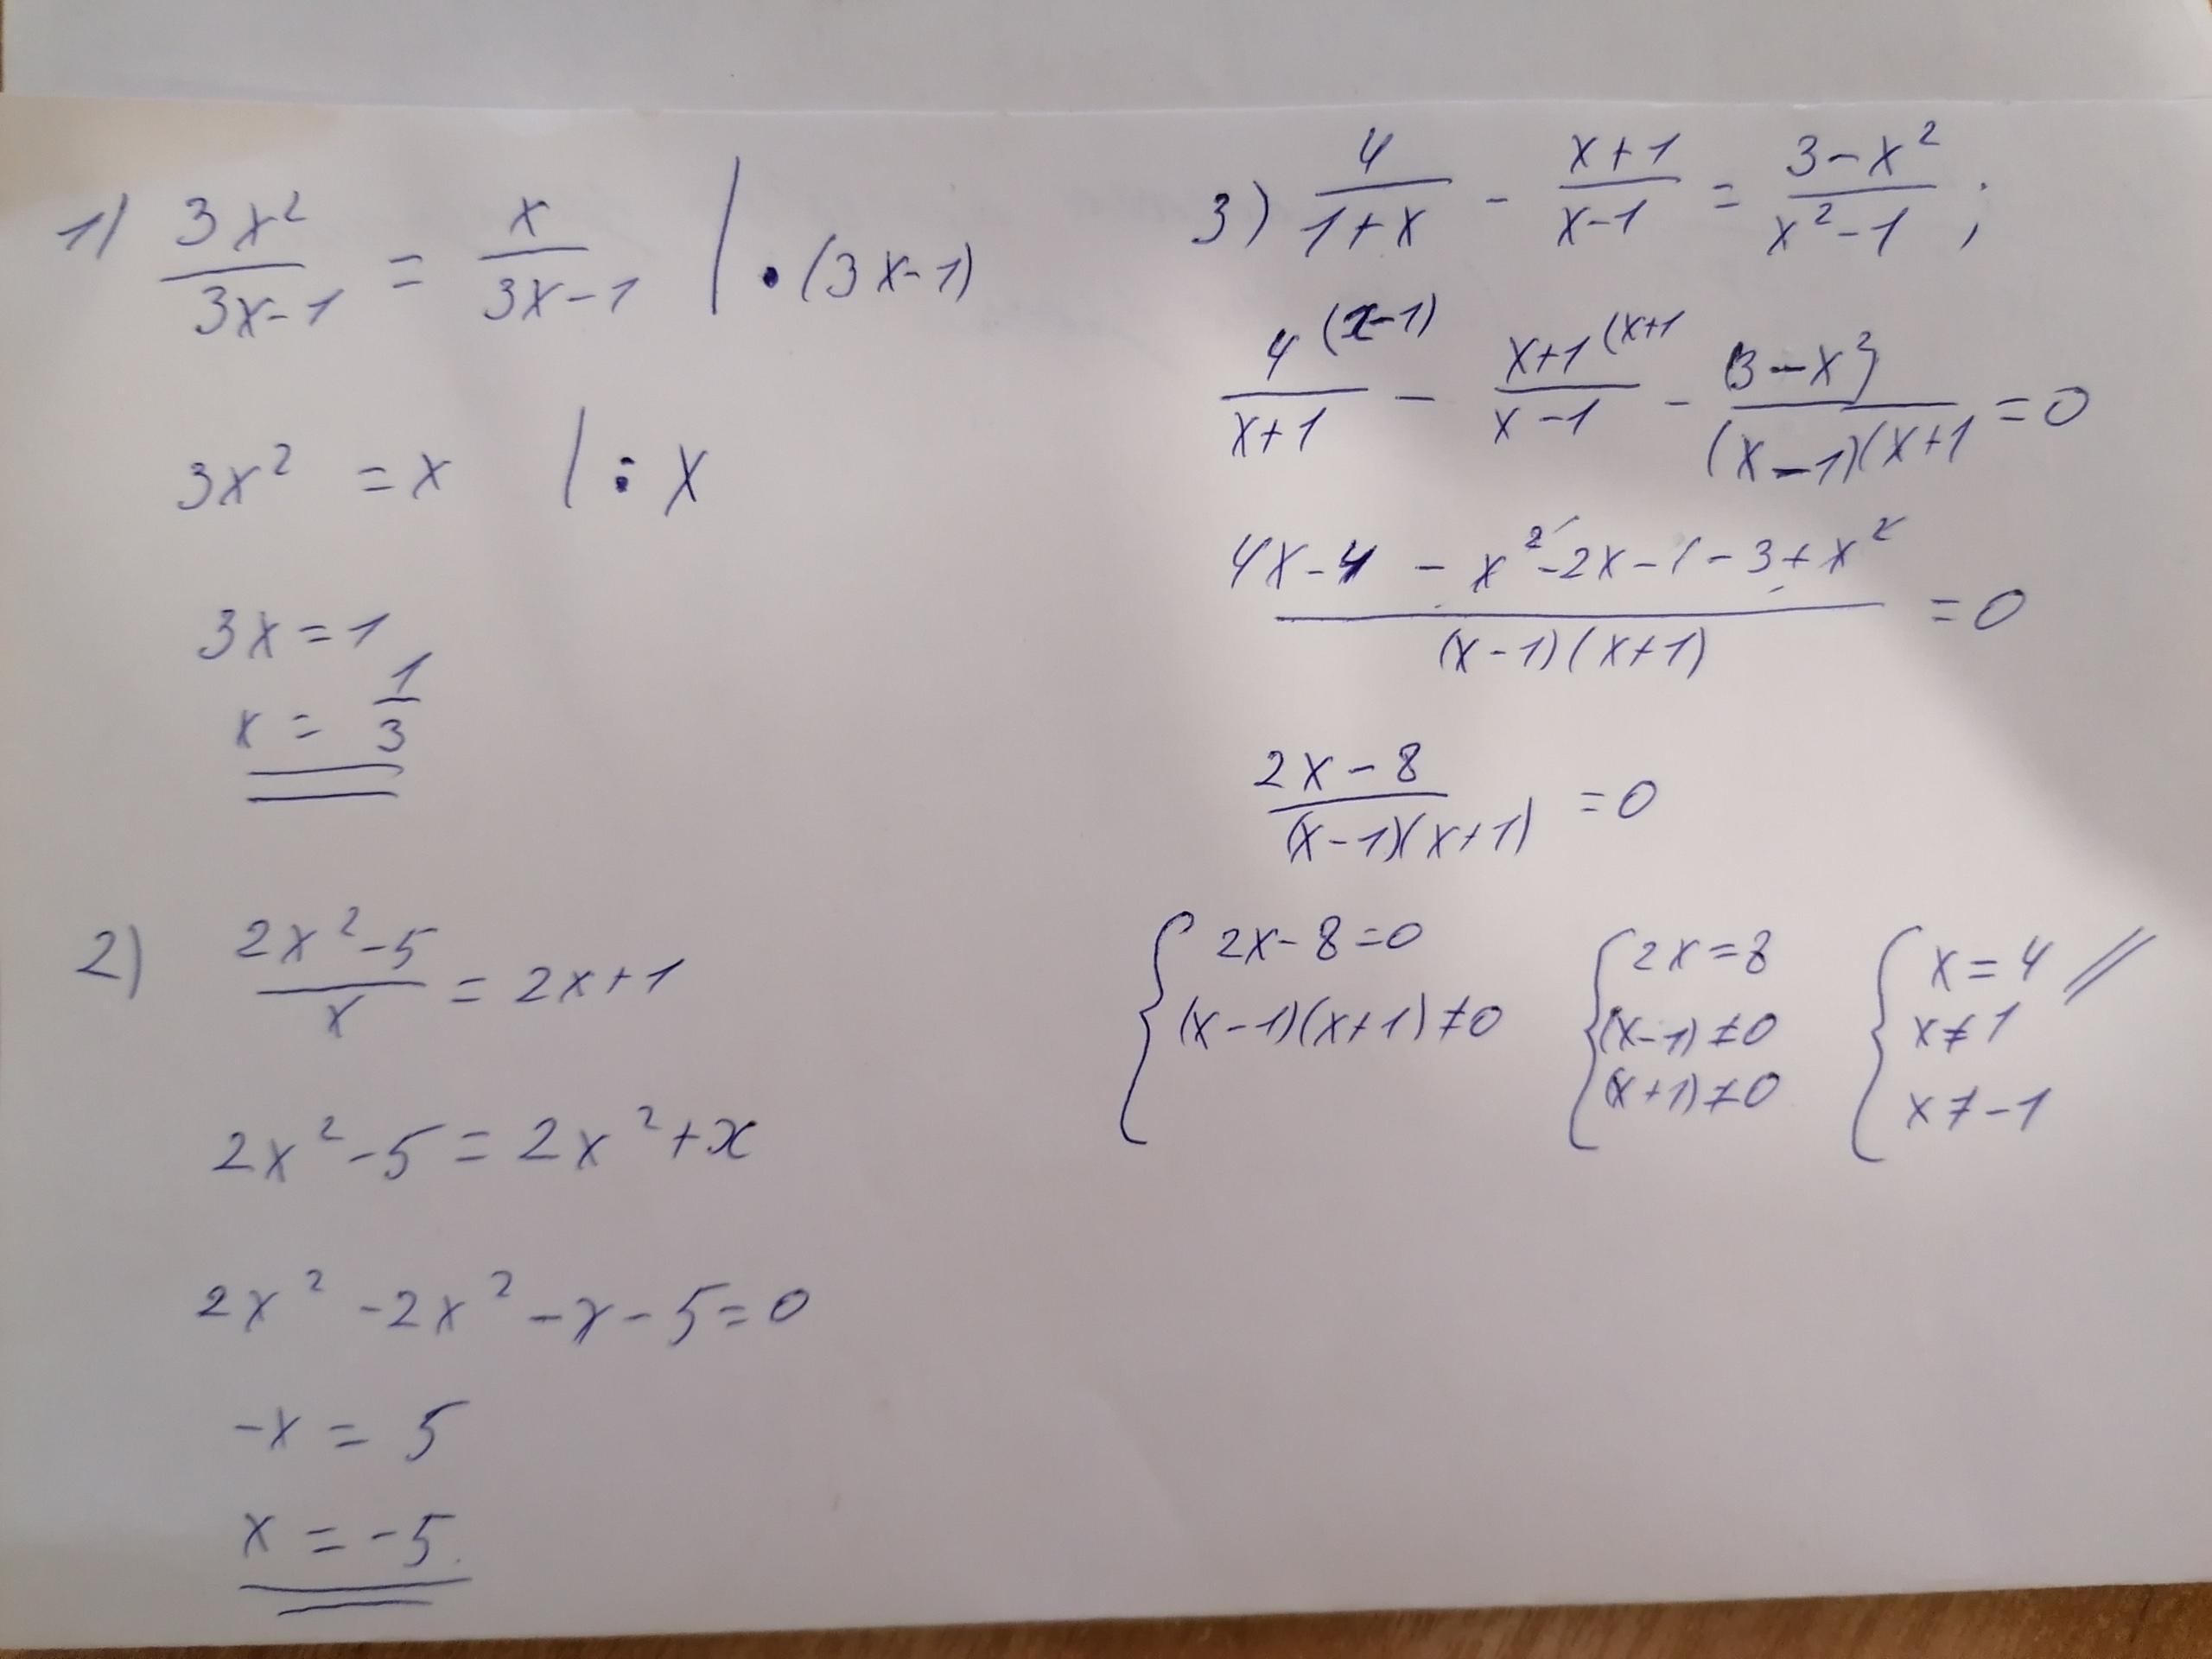 1) 3x²/3x-1 = x/3x-1 | • (3x-1)
3x² = x | : x
3x = 1
x = 1/3
2) 2x²-5/x = 2x+1
2x²-5 = 2x²+x
2x² -2x² -x-5=0
-x = 5
x = -5
3) 4/1+x - x+1/x-1 = 3-x²/x²-1 ;
4 (x-1)/x+1 - x+1 (x+1/x-1 - (3-x²)/(x-1)(x+1 = 0
4x-4 - x²-2x-1-3+x²/(x-1)(x+1) = 0
2x-8/(x-1)(x+1) = 0
{ 2x-8=0
(x-1)(x+1)≠0
{ 2x=8
(x-1)≠0
(x+1)≠0
{ x=4 //
x≠1
x≠-1